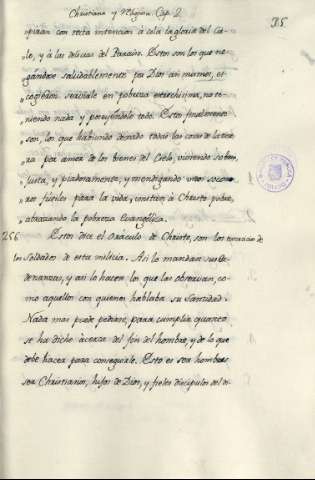 Christiana y Religion Cap. 2
35
piraan con recta intencion à sola la gloria del Cie-
„lo, y à las delicias del Paraiso. Estos son los que ne-
„gandose saludablemente por Dios asi mismos, es-
„cogieron servirle en pobreza estrechisima, no te-
„niendo nada y poseyendolo todo. Estos finalmente
„son, los que habiendo dexado todas las cosas de la tier-
„ra por amor de los bienes del Cielo, viviendo sobria,
„justa, y piadosamente, y mendigando unos socorr-
„ros faciles para la vida, imitan à Christo pobre,
„abrazando la pobreza Evangélica.
256 Estos dice el Oráculo de Christo, son los
los Soldados de esta milicia. Asi lo mandan sus Or-
denanzas, y asi lo hacen los que las observan, co-
mo aquellos con quienes hablaba su Santidad.
Nada mas puede pedirse, para cumplir quanto
se ha dicho acerca del fin del hombre, y de lo que
debe hacer para conseguirle. Esto es ser hombres,
ser Christianos, hijos de Dios, y fieles discipulos del di-